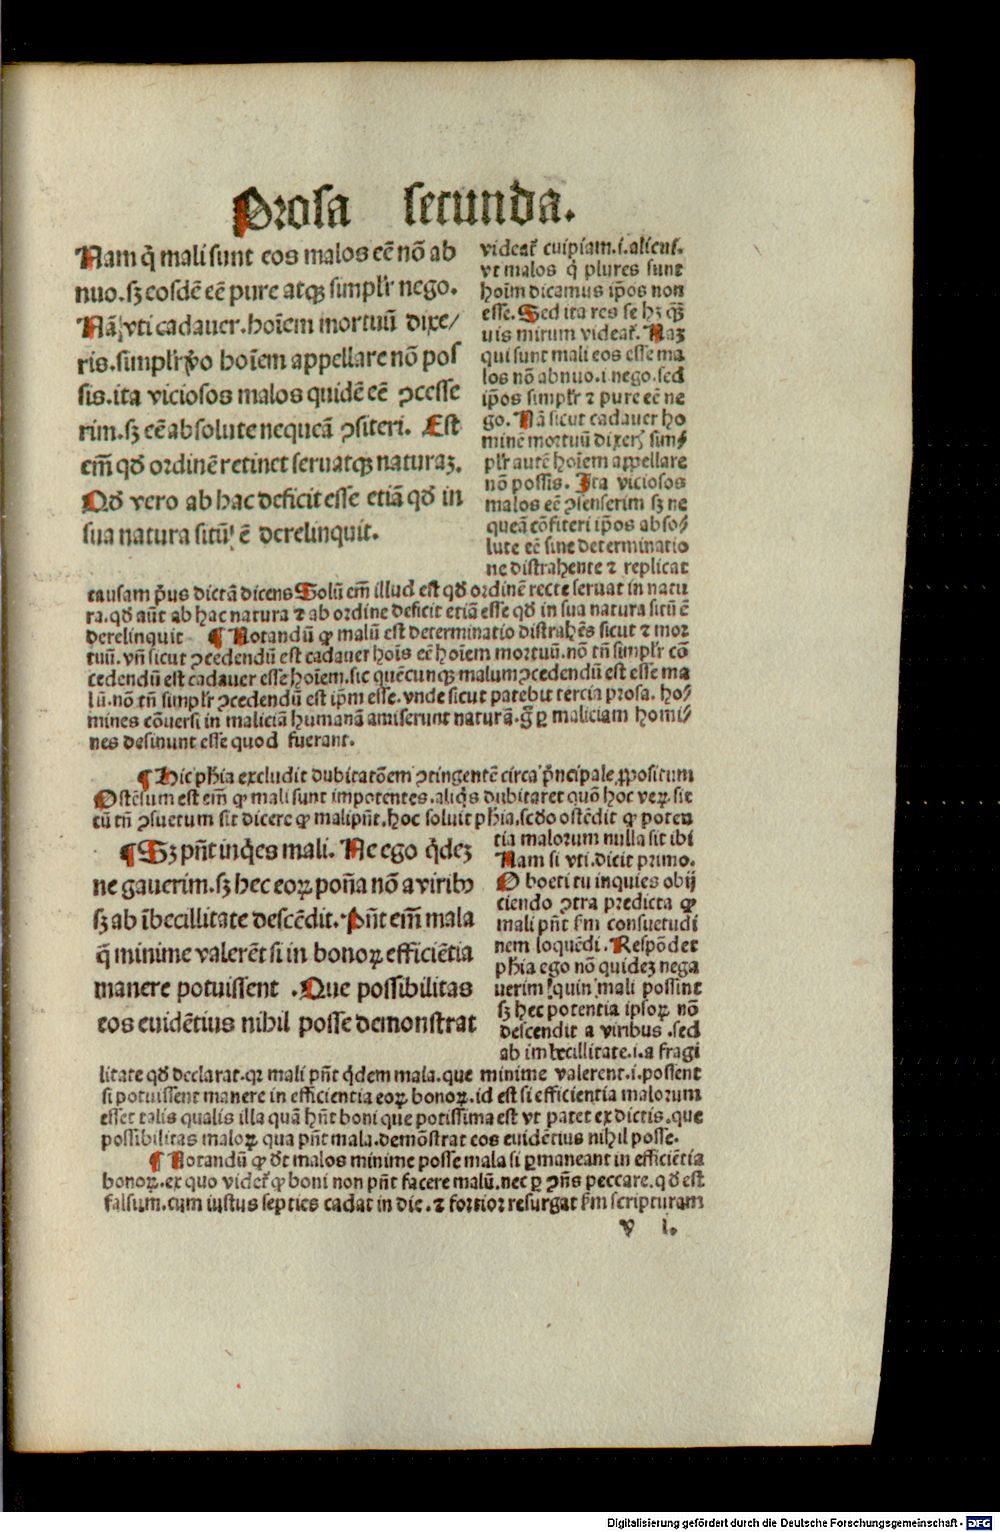 Prosa secunda.
Nam q̄ mali sunt eos malos eē nō ab
nuo. sꝫ eosdē eē pure atqꝫ simpl'r nego.
Nā vti cadauer. hoīem mortuū dixe/
ris. simpl'r ṽo hoīem appellare nō pos
sis. ita viciosos malos quidē eē ꝯcesse
rim. sꝫ eē absolute nequeā ꝯfiteri. Est
em̄ qđ ordinē retinet seruatqꝫ naturaꝫ.
Qđ vero ab hac deficit esse etiā qđ in
sua natura sitū ē derelinquit.
videat᷑ cuipiam .i. alicui.
vt malos q̄ plures sunt
hoīm dicamus ip̄os non
esse. Sed ita res se hꝫ qꝫ̄
uis mirum videat᷑. Naꝫ
qui sunt mali eos esse ma
los nō abnuo .i. nego. sed
ip̄os simpl'r ⁊ pure eē ne
go. Nā sicut cadauer ho
minē mortuū dixer᷑ sim⸗
pl'r autē hoīem appellare
nō possis. Ita viciosos
malos eē ꝯsenserim sꝫ ne
queā cōfiteri ip̄os abso⸗
lute eē sine determinatio
ne distrahente ⁊ replicat
causam p̄us dictā dicens Solū em̄ illud est qđ ordinē recte seruat in natu
ra. qđ aūt ab hac natura ⁊ ab ordine deficit etiā esse qđ in sua natura sitū ē
derelinquit ¶ Notandū ꝙ malū est determinatio distrahēs sicut ⁊ mor
tuū. vn̄ sicut ꝯcedendū est cadauer hoīs eē hoīem mortuū. nō tn̄ simpl'r cō
cedendū est cadauer esse hoīem. sic quēcunqꝫ malum ꝯcedendū est esse ma
lū. nō tn̄ simpl'r ꝯcedendū est ip̄m esse. vnde sicut patebit tercia prosa. ho⸗
mines cōuersi in maliciā humanā amiserunt naturā. g̊ ꝑ maliciam homi⸗
nes desinunt esse quod fuerant.
¶ Hic ph'ia excludit dubitatōem ꝯtingentē circa p̄ncipale ꝓpositum
Ostēsum est em̄ ꝙ mali sunt impotentes. aliq̇s dubitaret quō hoc veꝝ sit
cū tn̄ ꝯsuetum sit dicere ꝙ mali pn̄t. hoc soluit ph'ia. scd̄o ostēdit ꝙ poten
tia malorum nulla sit ibi
Nam si vti. dicit primo.
O boeti tu inquies obij
ciendo ꝯtra predicta ꝙ
mali pn̄t km̄ consuetudi
nem loquēdi. Respōdet
ph'ia ego nō quideꝫ nega
uerim quin mali possint
sꝫ hec potentia ipsoꝝ nō
descendit a viribus. sed
ab imbecillitate .i. a fragi
¶ Sꝫ pn̄t inq̇es mali. Ne ego q̇deꝫ
negauerim. sꝫ hec eoꝝ pon̄a nō a viribꝰ
sꝫ ab ībecillitate descēdit. Pn̄t em̄ mala
q̄ minime valerēt si in bonoꝝ efficiētia
manere potuissent. Que possibilitas
eos euidētius nihil posse demonstrat
litate qđ declarat. qꝛ mali pn̄t q̇dem mala. que minime valerent .i. possent
si potuissent manere in efficientia eoꝝ bonoꝝ. id est si efficientia malorum
esset talis qualis illa quā hn̄t boni que potissima est vt patet ex dictis. que
possibilitas maloꝝ qua pn̄t mala. demōstrat eos euidētius nihil posse.
¶ Notandū ꝙ dt̄ malos minime posse mala si ꝑmaneant in efficiētia
bonoꝝ. ex quo videt᷑ ꝙ boni non pn̄t facere malū. nec ꝑ ꝯn̄s peccare. qđ est
falsum. cum iustus septies cadat in die. ⁊ fortior resurgat km̄ scripturam
v i.
Digitalisierung gefördert durch die Deutsche Forschungsgemeinschaft - DFG